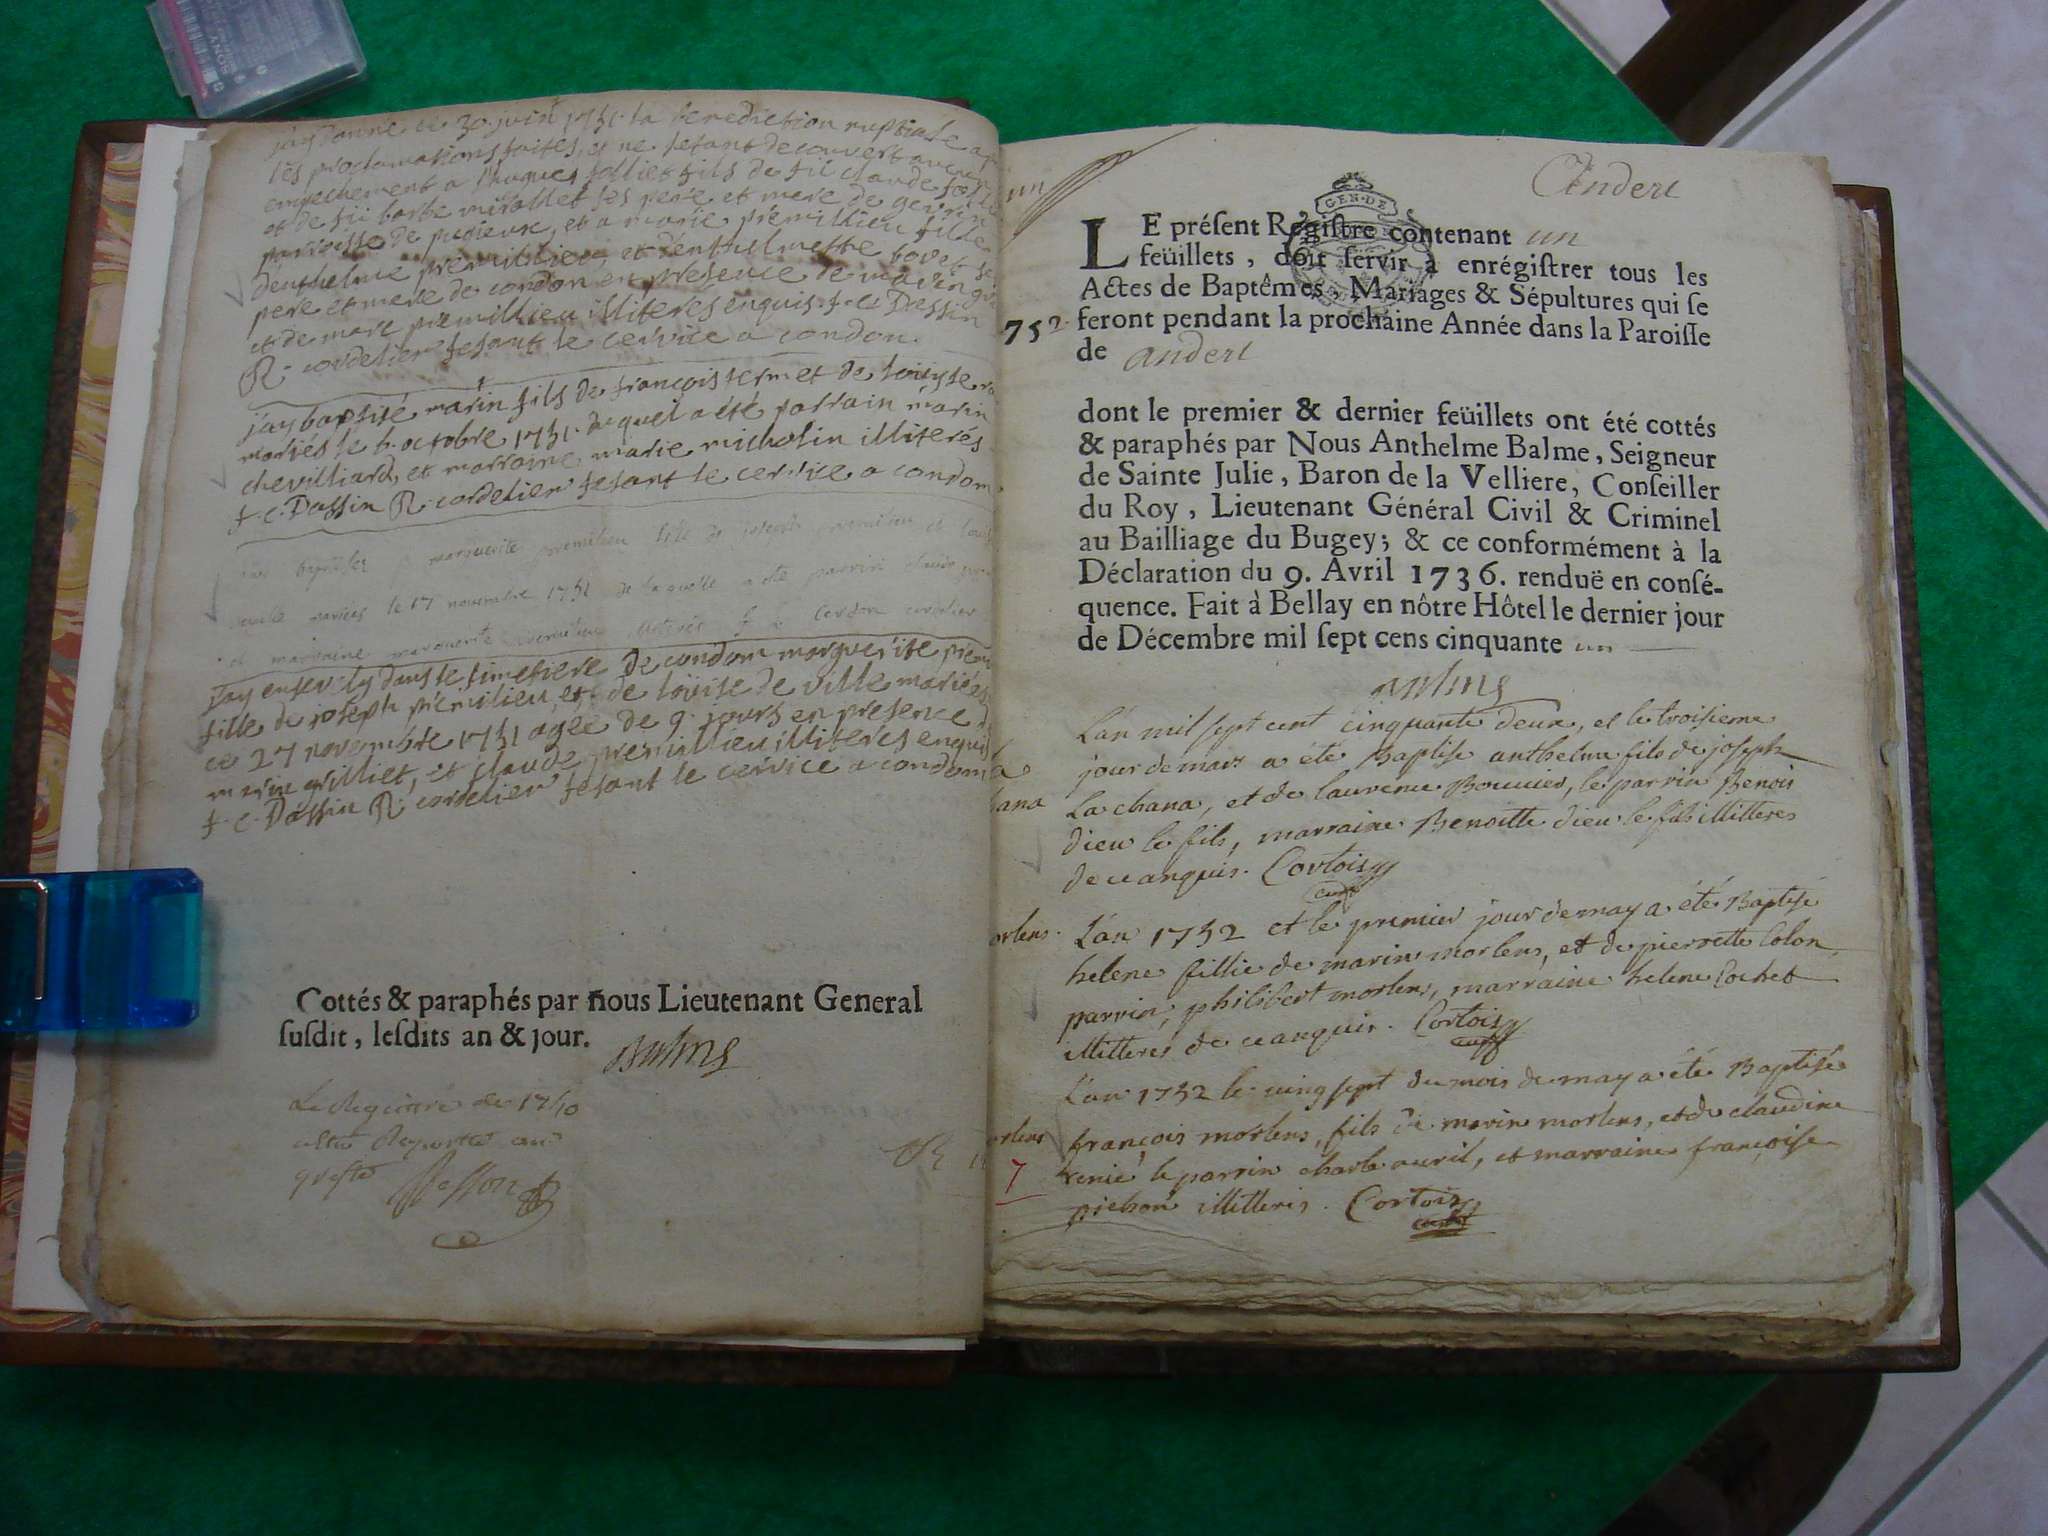 SONY
jay donné ce 30 juin 1751 la benediction nuptiale
les proclamations faites, et ne s'etant decouvert aucun
empechement a hugues jolliet fils de fû claude
et de fû barbe mirallet ses pere et mere de
parroisse de pugieux, et a marie prémillieu fille
d'enthelme prémillieu, et d'enthelmette bovet
pere et mere de condon en presence de marin
et de marc prémillieu illiteres enquis. f. c. Dassin
R. cordelier fesant le cervice a condon.
jay baptisé marin fils de françois termet de
mariés le 6. octobre 1751. duquel a été parrain marin
chevilliard, et marraine marie micholin illiterés
f. c. Dassin R. cordelier fesant le cervice a condon
marguerite premilieu fille de joseph premilieu et
mariées le 17 novembre 1751 de laquelle a été parrin
et marraine marguerite premilieu
jay ensevely dans le simetiere de condom marguerite
fille de joseph prémilieu, et de loüise de ville mariés
ce 27 novembre 1751 agée de 9. jours en presence
marin grilliet, et claude premillieu illiteres enquis
f. c. Dassin R. cordelier fesant le cervice a condom
Cottés & paraphés par nous Lieutenant General
ſuſdit, leſdits an & jour.
Balme
Le Registre de 1750
un
Andert
GEN·DE
LE préſent Regiſtre contenant un
feüillets, doit ſervir à enrégiſtrer tous les
Actes de Baptêmes, Mariages & Sépultures qui ſe
752. feront pendant la prochaine Année dans la Paroiſſe
de andert
dont le premier & dernier feüillets ont été cottés
& paraphés par Nous Anthelme Balme, Seigneur
de Sainte Julie, Baron de la Velliere, Conſeiller
du Roy, Lieutenant Général Civil & Criminel
au Bailliage du Bugey; & ce conformément à la
Déclaration du 9. Avril 1736. renduë en conſé-
quence. Fait à Bellay en nôtre Hôtel le dernier jour
de Décembre mil ſept cens cinquante un
Balme
L'an mil sept cent cinquante deux, et le troisieme
jour de mars a été Baptisé anthelme fils de joseph
hana La chana, et de laurence Bouvier, le parrin Benoit
dieu le fils, marraine Benoitte dieu le fils illitteres
de ce anquis. Cortois
curé
orlens. L'an 1752 et le premier jour de may a été Baptisée
helene fillie de marin morlens, et de pierrette Colon,
parrin, philibert morlens, marraine helene Cochet
illitteres de ce anquis. Cortois
curé
L'an 1752 le vingt sept du mois de may a été Baptisé
rlens françois morlens, fils de marin morlens, et de claudine
7 le parrin charle avril, et marraine françoise
pichon illitteris. Cortois
curé